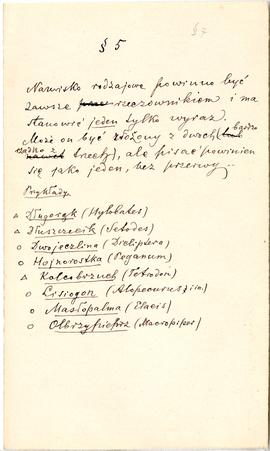 § 5
§ 7
Nazwisko rodzajowe powinno być
zawsze rzeczownikiem i ma
stanowić jeden tylko wyraz.
Może on być złożony z dwóch (bardzo
rzadko z trzech), ale pisać powinien
się jako jeden, bez przerwy.
Przykłady
△ Długoręk (Hylobates)
△ Dłuszczecik (Setodes)
○ Dwojeczlina (Dicliptera)
○ Hojnorostka (Peganum)
△ Kolcobrzuch (Tetrodon)
○ Lisiogon (Alopecurus) i in.
○ Masłopalma (Elaeis)
○ Olbrzypieprz (Macropiper)